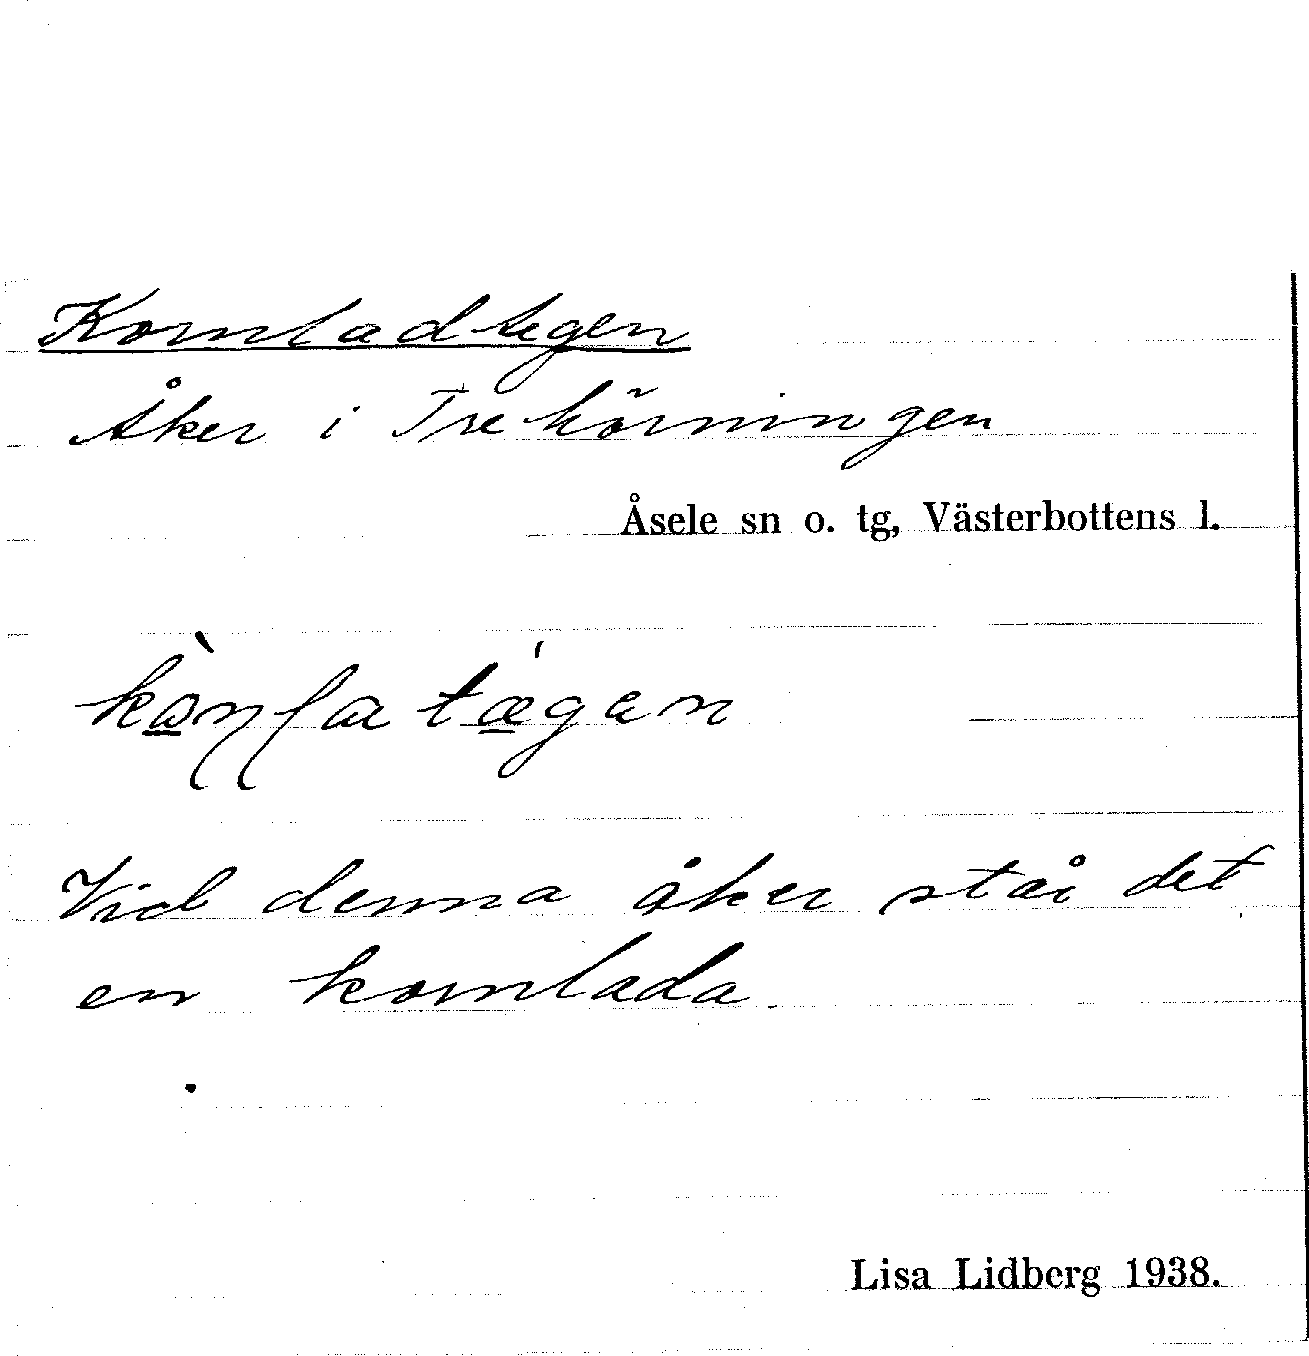 Kornladtegen
Åker i Trehörningen
Åsele sn o. tg, Västerbottens l.
Vid denna åker står det
en kornlada
Lisa Lidberg 1938.